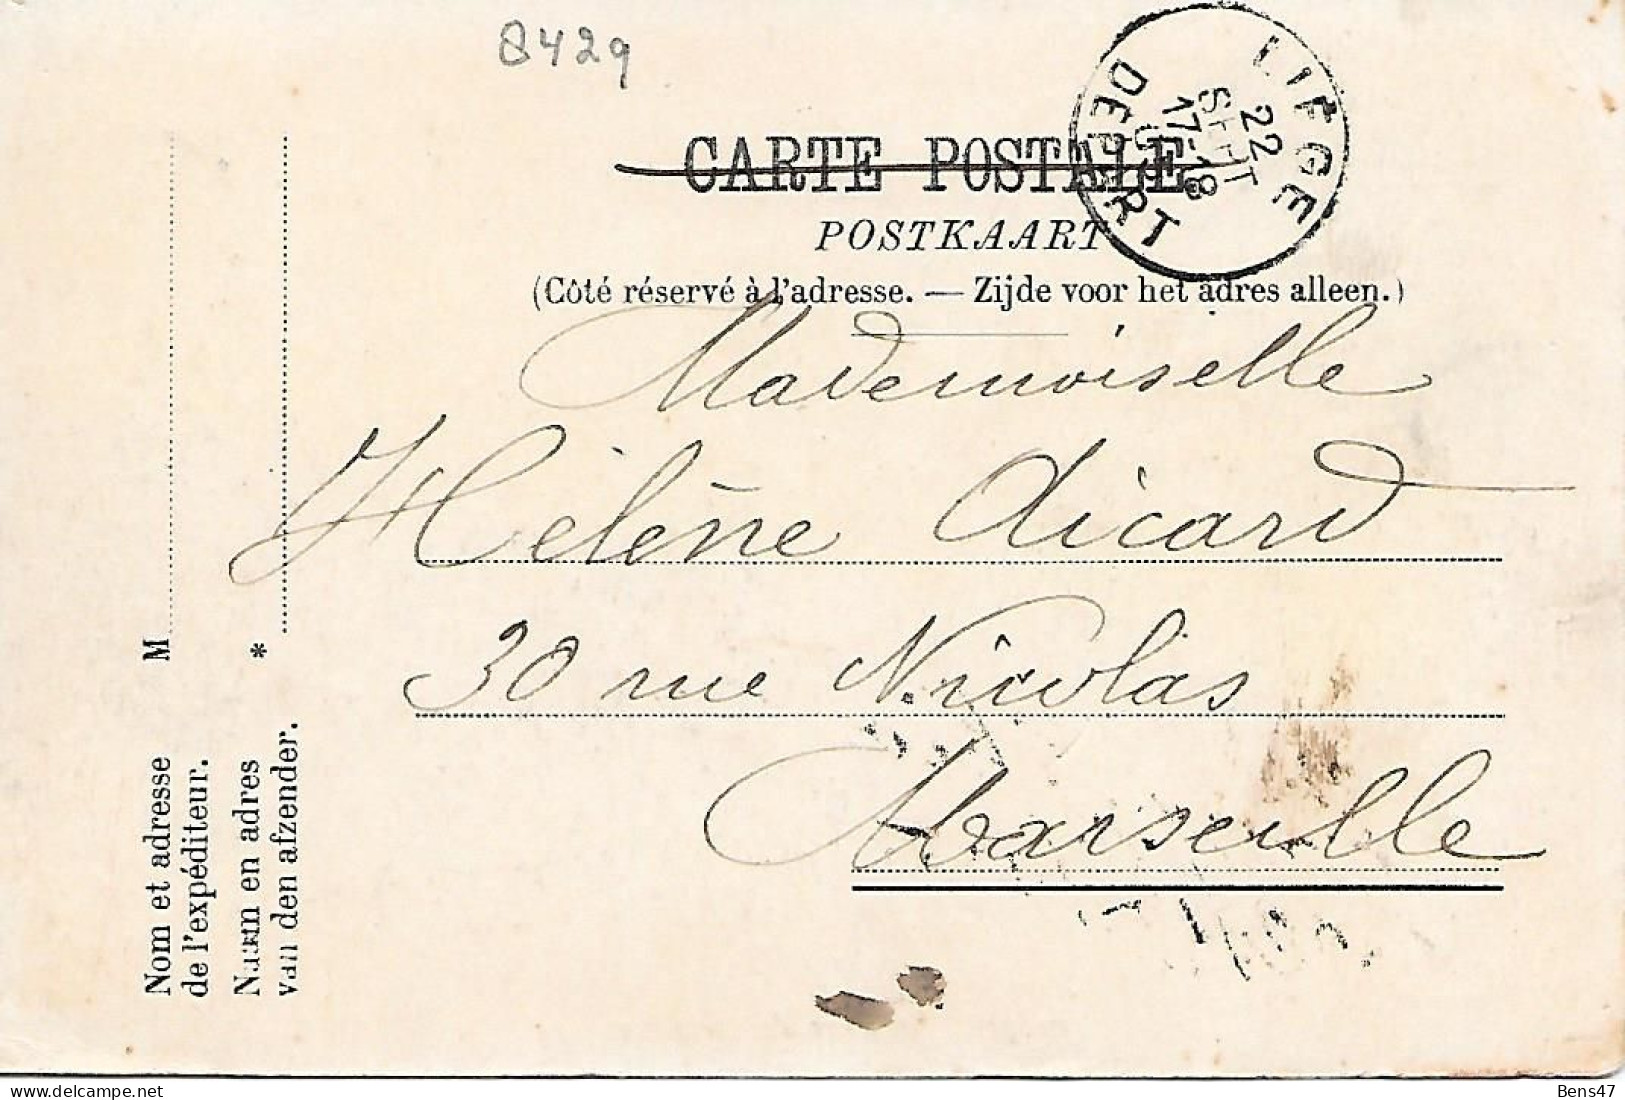 8429
LIEGE
22
SEPT
17-18
DEPART
CARTE POSTALE
POSTKAART
(Côté réservé à l'adresse. — Zijde voor het adres alleen.)
Mademoiselle
Hélène Aicard
30 rue Nicolas
Marseille
M
*
Nom et adresse
de l'expéditeur.
Naam en adres
van den afzender.
Bens47